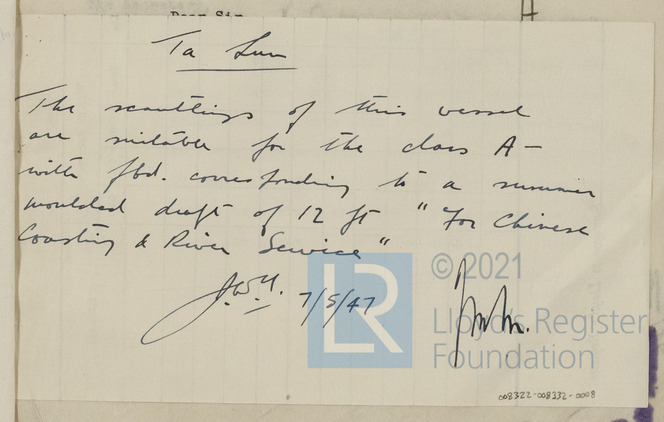 Dear Sir
Ta Lun
The scantlings of this vessel
are suitable for the class A-
with fbd. corresponding to a summer
moulded draft of 12 ft "For Chinese
Coasting & River Service"
J.W.Y. 7/5/47
LR
© 2021
Lloyd's Register
Foundation
008322-008332-0008